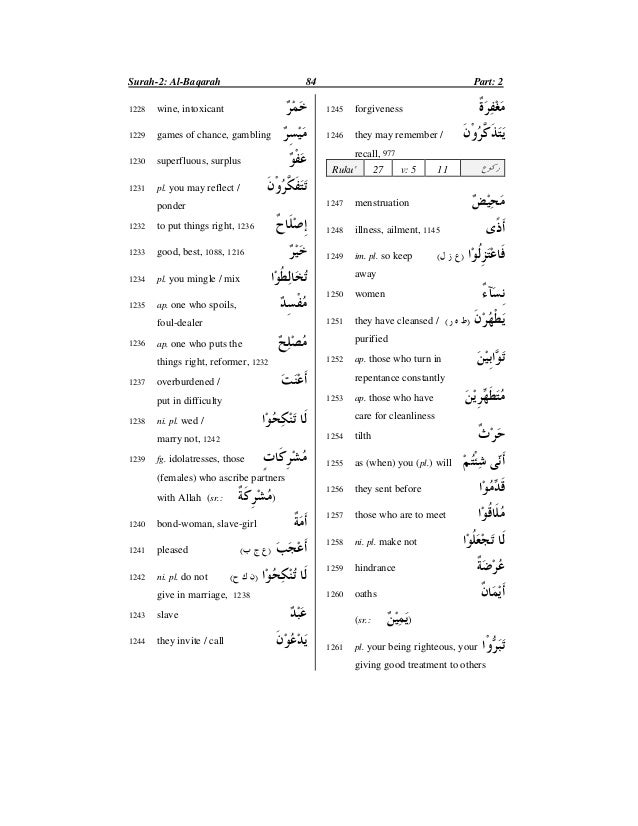 Surah-2: Al-Baqarah 84 Part: 2
1228 wine, intoxicant خَمْرٌ
1229 games of chance, gambling مَيْسِرٌ
1230 superfluous, surplus عَفْوٌ
1231 pl. you may reflect / تَتَفَكَّرُوْنَ
ponder
1232 to put things right, 1236 إِصْلَاحٌ
1233 good, best, 1088, 1216 خَيْرٌ
1234 pl. you mingle / mix تُخَالِطُوْا
1235 ap. one who spoils, مُفْسِدٌ
foul-dealer
1236 ap. one who puts the مُصْلِحٌ
things right, reformer, 1232
1237 overburdened / أَعْنَتَ
put in difficulty
1238 ni. pl. wed / لَا تَنْكِحُوْا
marry not, 1242
1239 fg. idolatresses, those مُشْرِكَاتٌ
(females) who ascribe partners
with Allah (sr.: مُشْرِكَةٌ)
1240 bond-woman, slave-girl أَمَةٌ
1241 pleased (ع ج ب) أَعْجَبَ
1242 ni. pl. do not (ن ك ح) لَا تُنْكِحُوْا
give in marriage, 1238
1243 slave عَبْدٌ
1244 they invite / call يَدْعُوْنَ
1245 forgiveness مَغْفِرَةٌ
1246 they may remember / يَتَذَكَّرُوْنَ
recall, 977
Ruku' 27 v: 5 11 ركوع
1247 menstruation مَحِيْضٌ
1248 illness, ailment, 1145 أَذًى
1249 im. pl. so keep (ع ز ل) فَاعْتَزِلُوْا
away
1250 women نِسَآءٌ
1251 they have cleansed / (ط ه ر) يَطْهُرْنَ
purified
1252 ap. those who turn in تَوَّابِيْنَ
repentance constantly
1253 ap. those who have مُتَطَهِّرِيْنَ
care for cleanliness
1254 tilth حَرْثٌ
1255 as (when) you (pl.) will أَنّٰى شِئْتُمْ
1256 they sent before قَدِّمُوْا
1257 those who are to meet مُلَاقُوْا
1258 ni. pl. make not لَا تَجْعَلُوْا
1259 hindrance عُرْضَةٌ
1260 oaths أَيْمَانٌ
(sr.: يَمِيْنٌ)
1261 pl. your being righteous, your تَبَرُّوْا
giving good treatment to others